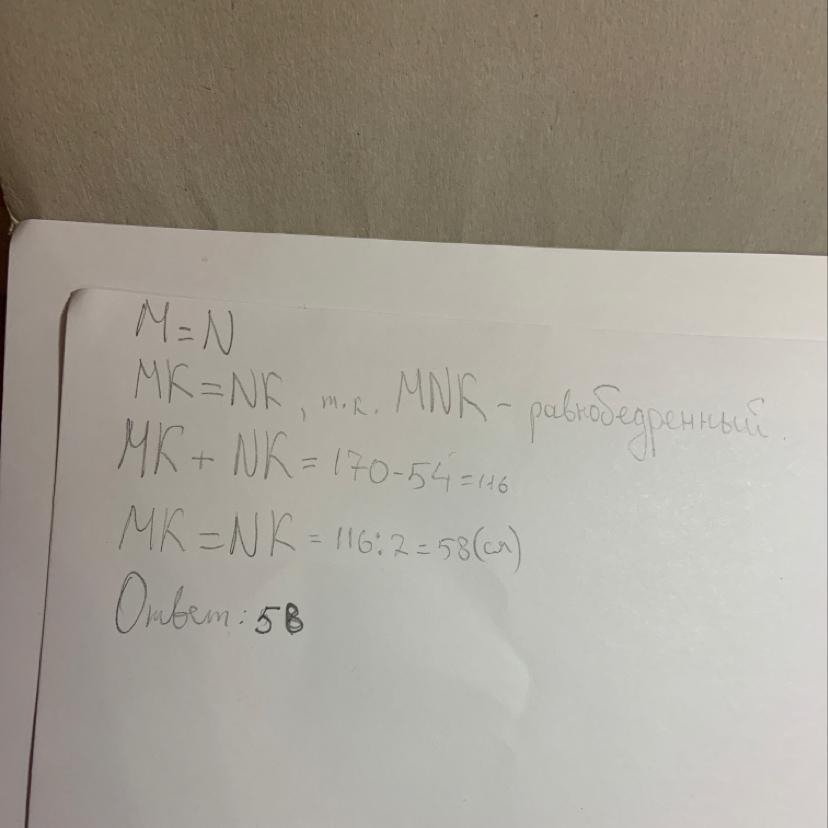 M=N
MK=NK, т.к. MNK - равнобедренный.
MK + NK = 170-54=116
MK = NK = 116:2=58(см)
Ответ: 58